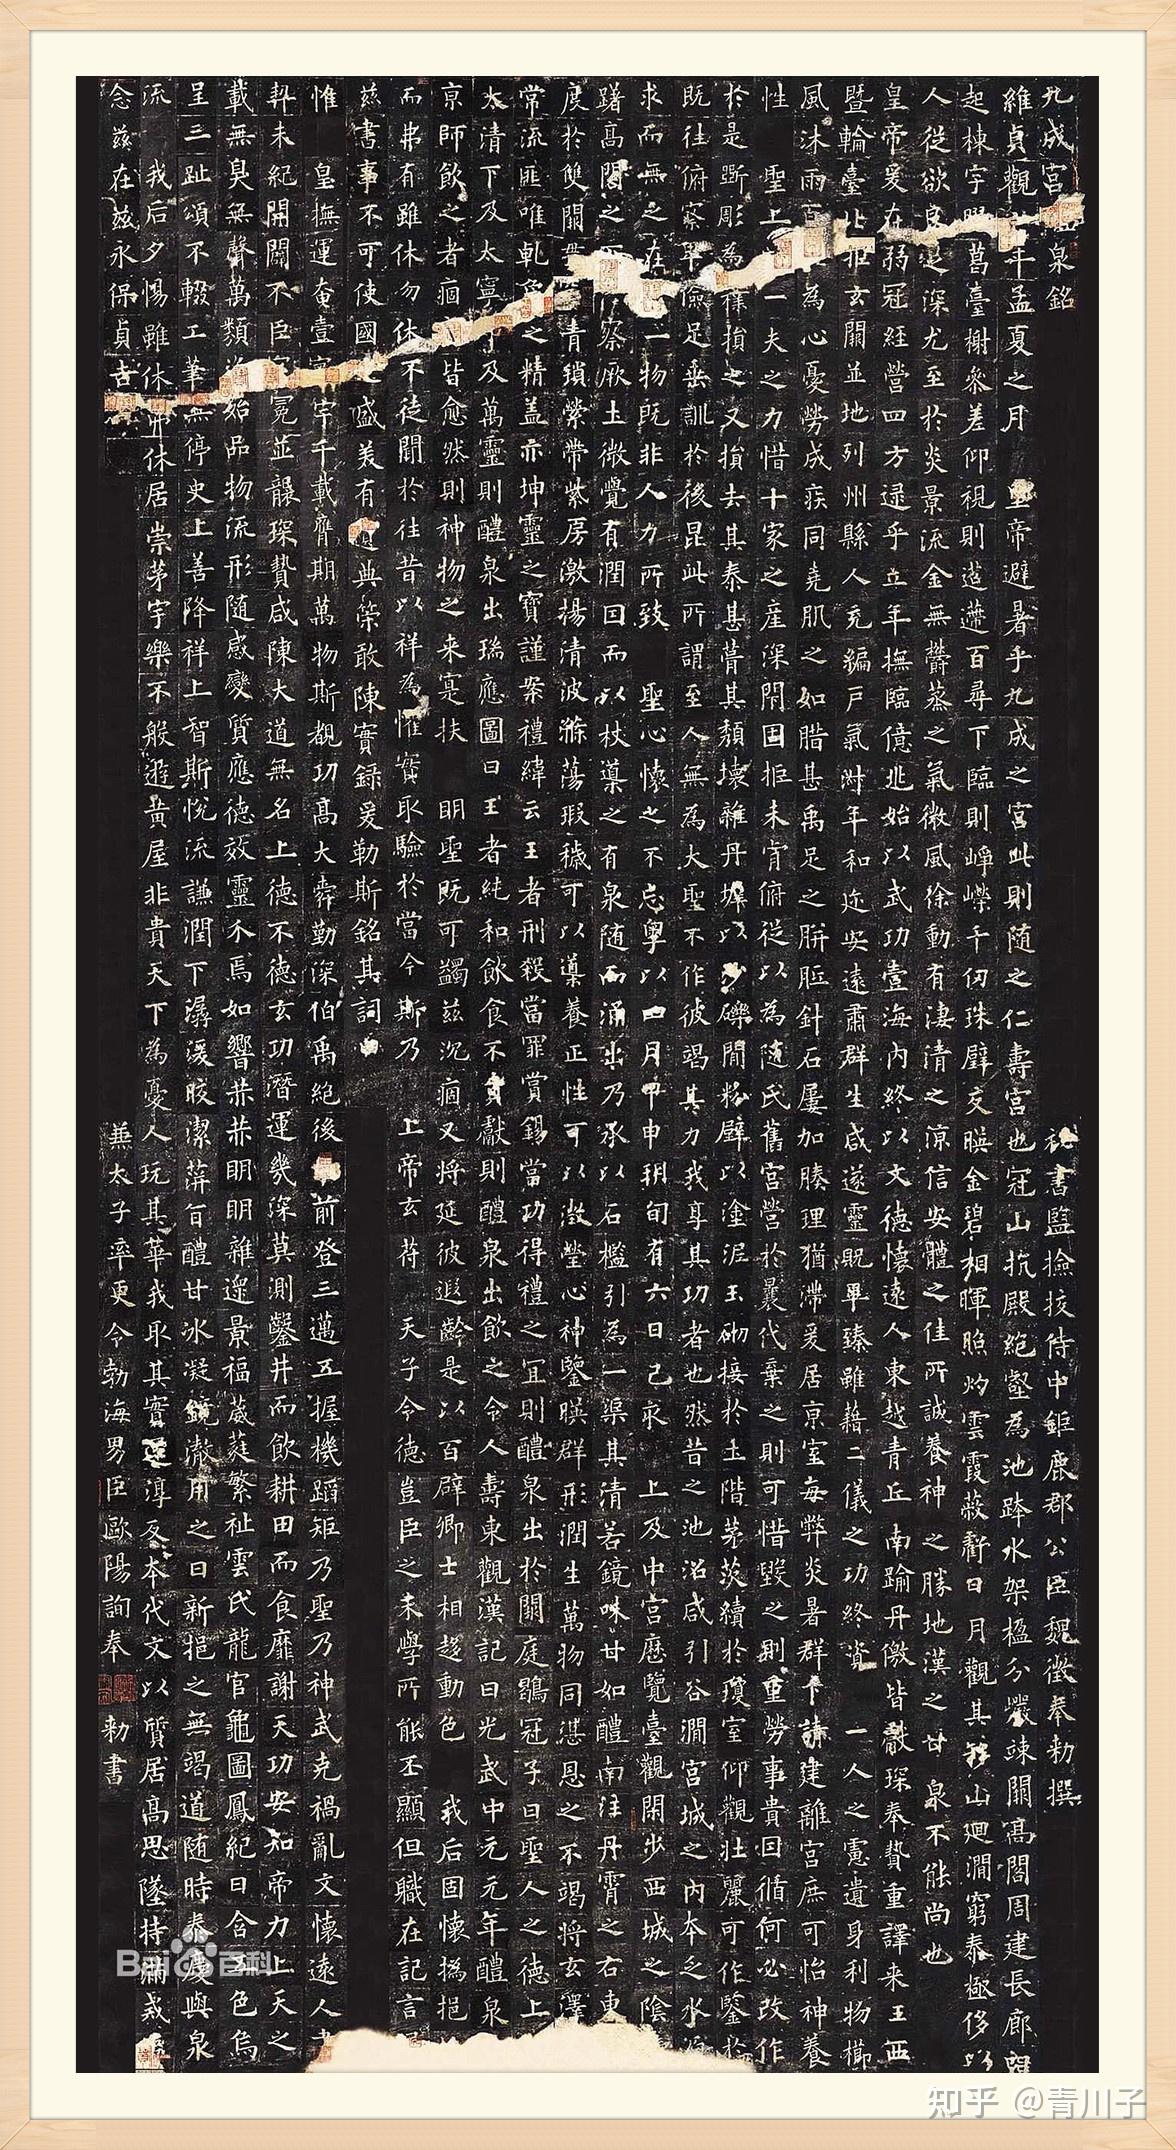 九成宮泉銘 秘書監撿挍侍中鉅鹿郡公臣魏徵奉勑撰
維貞觀年孟夏之月 皇帝避暑乎九成之宮此則隨之仁壽宮也冠山抗殿絕壑為池跨水架楹分巖竦闕高閣周建長廊
起棟宇葛臺榭參差仰視則迢遰百尋下臨則崢嶸千仞珠璧交暎金碧相暉照灼雲霞蔽虧日月觀其移山迴澗窮泰極侈以
人從欲良之深尤至於炎景流金無鬱蒸之氣微風徐動有淒清之涼信安體之佳所誠養神之勝地漢之甘泉不能尚也
皇帝爰在弱冠經營四方逮乎立年撫臨億兆始以武功壹海內終以文德懷遠人東越青丘南踰丹儌皆獻琛奉贄重譯來王西
暨輪臺北拒玄闕並地列州縣人充編戶氣淑年和邇安遠肅群生咸遂靈貺畢臻雖藉二儀之功終資 一人之慮遺身利物櫛
風沐雨百為心憂勞成疾同堯肌之如腊甚禹足之胼胝針石屢加腠理猶滯爰居京室每弊炎暑群下請建離宮庶可怡神養
性 聖上一夫之力惜十家之產深閉固拒未肯俯從以為隨氏舊宮營於曩代棄之則可惜毀之則重勞事貴因循何必改作
於是斲彫為樸損之又損去其泰甚葺其頹壞雜丹墀以沙礫間粉壁以塗泥玉砌接於土階茅茨續於瓊室仰觀壯麗可作鑒於
既往俯察卑儉足垂訓於後昆此所謂至人無為大聖不作彼竭其力我享其功者也然昔之池沼咸引谷澗宮城之內本乏水源
求而無之在一物既非人力所致 聖心懷之不忘粵以四月甲申朔旬有六日己亥 上及中宮歷覽臺觀閑步西城之陰
躊高閣之察厥土微覺有潤因而以杖導之有泉隨而涌出乃承以石檻引為一渠其清若鏡味甘如醴南注丹霄之右東
度於雙闕貫青瑣縈帶紫房激揚清波滌蕩瑕穢可以導養正性可以澂瑩心神鑒暎群形潤生萬物同湛恩之不竭將玄澤
常流匪唯乾象之精蓋亦坤靈之寶謹案禮緯云王者刑殺當罪賞錫當功得禮之宜則醴泉出於闕庭鶡冠子曰聖人之德上
太清下及太寧及萬靈則醴泉出瑞應圖曰王者純和飲食不貢獻則醴泉出飲之令人壽東觀漢記曰光武中元元年醴泉
京師飲之者痼皆愈然則神物之來寔扶 明聖既可蠲茲沉痼又將延彼遐齡是以百辟卿士相趍動色 我后固懷撝挹
而弗有雖休勿休不徒聞於往昔以祥為懼實取驗於當今斯乃 上帝玄符 天子令德豈臣之末學所能丕顯但職在記言
茲書事不可使國之盛美有遺典策敢陳實錄爰勒斯銘其詞曰
惟 皇撫運奄壹宇千載膺期萬物斯覩功高大舜勤深伯禹絕後前登三邁五握機蹈矩乃聖乃神武克禍亂文懷遠人書
契未紀開闢不臣冠冕並襲琛贄咸陳大道無名上德不德玄功潛運幾深莫測鑿井而飲耕田而食靡謝天功安知帝力上天之
載無臭無聲萬類始品物流形隨感變質應德效靈介焉如響赫赫明明雜遝景福葳蕤繁祉雲氏龍官龜圖鳳紀日含五色烏
呈三趾頌不輟工筆無停史上善降祥上智斯悅流謙潤下潺湲皎潔蓱旨醴甘冰凝鏡澈用之日新挹之無竭道隨時泰慶與泉
流 我后夕惕雖休弗休居崇茅宇樂不般遊黃屋非貴天下為憂人玩其華我取其實還淳反本代文以質居高思墜持滿戒
念茲在茲永保貞吉 兼太子率更令勃海男臣歐陽詢奉 勑書
Baidu百科
知乎 @青川子